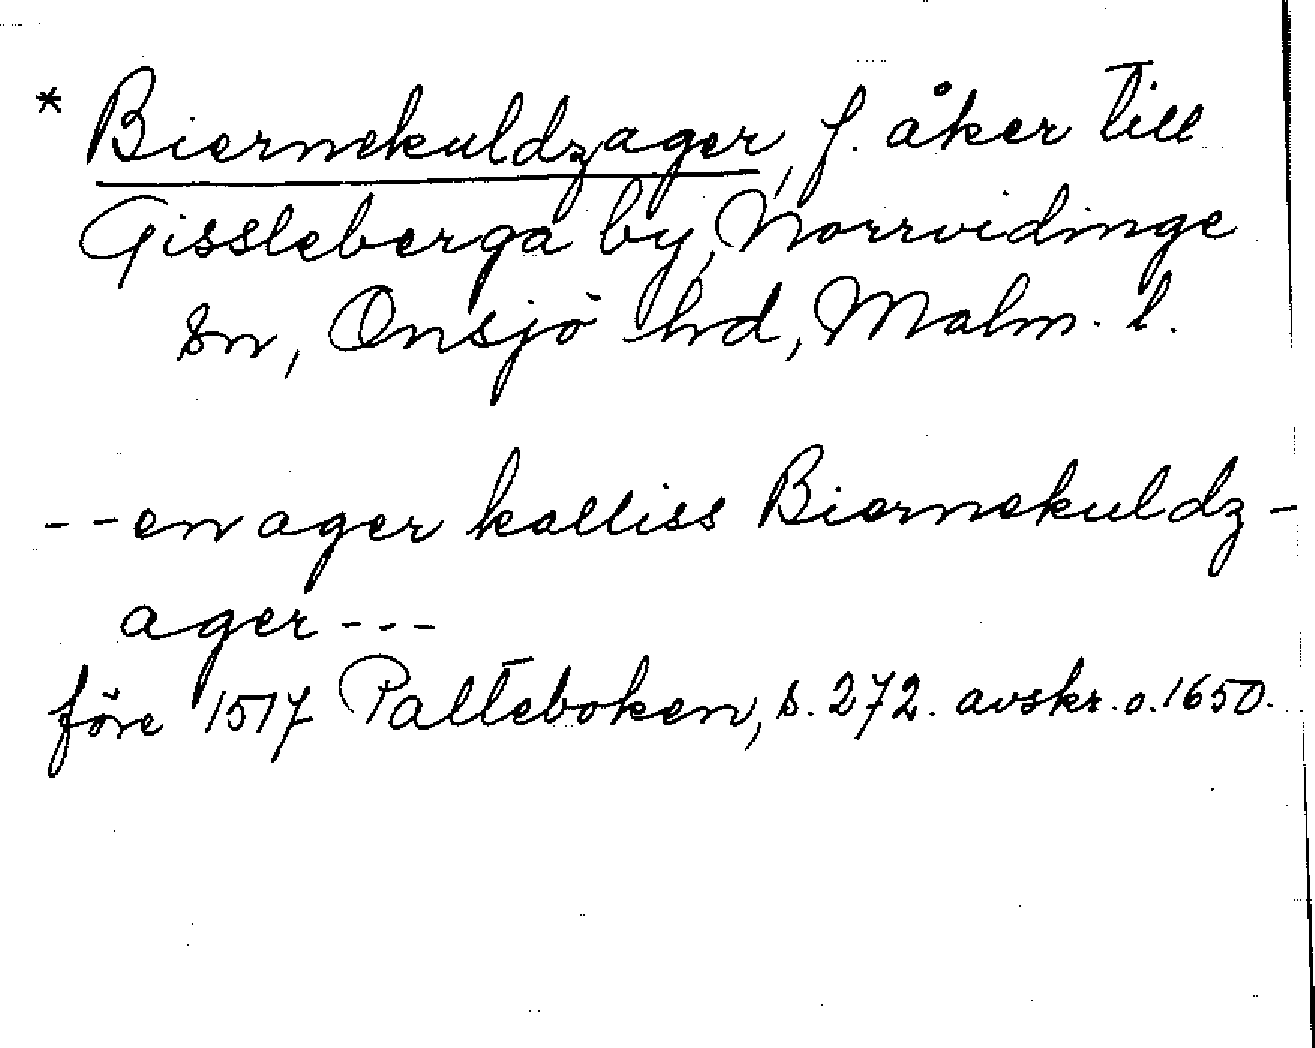 * Biernekuldzager, f. åker till
Gissleberga by, Norrvidinge
sn, Onsjö hrd, Malm. l.
- - en ager kalliss Biernekuldz-
ager - - -
före 1517 Palteboken, s. 272. avskr. o. 1650.